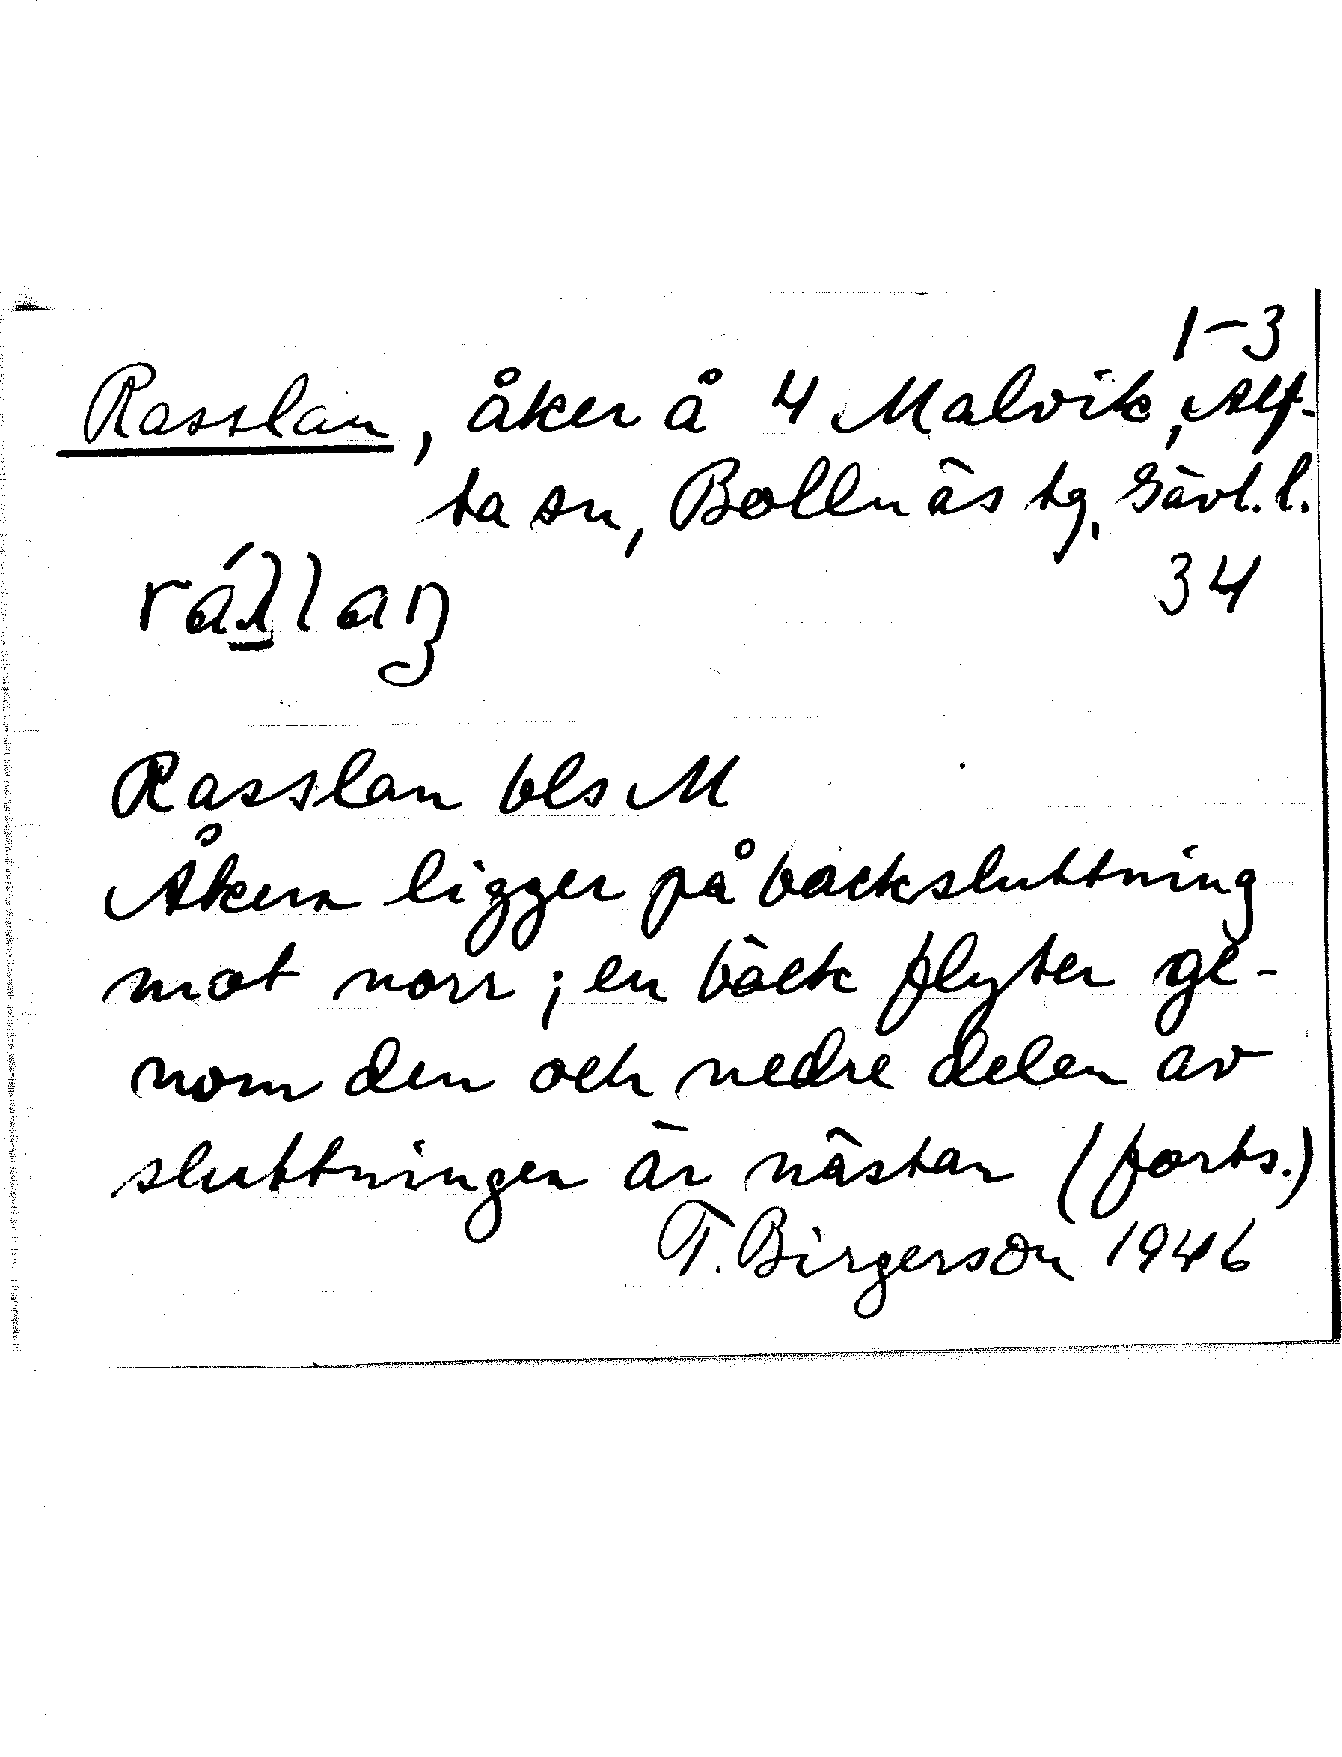 1-3
Rasslan, åker å 4 Malvik, Alf-
ta sn, Bollnäs tg, Gävl. l.
34
Rasslan bls M
Åkern ligger på backsluttning
mot norr; en bäck flyter ge-
nom den och nedre delen av
sluttningen är nästan (forts.)
T. Birgerson 1946